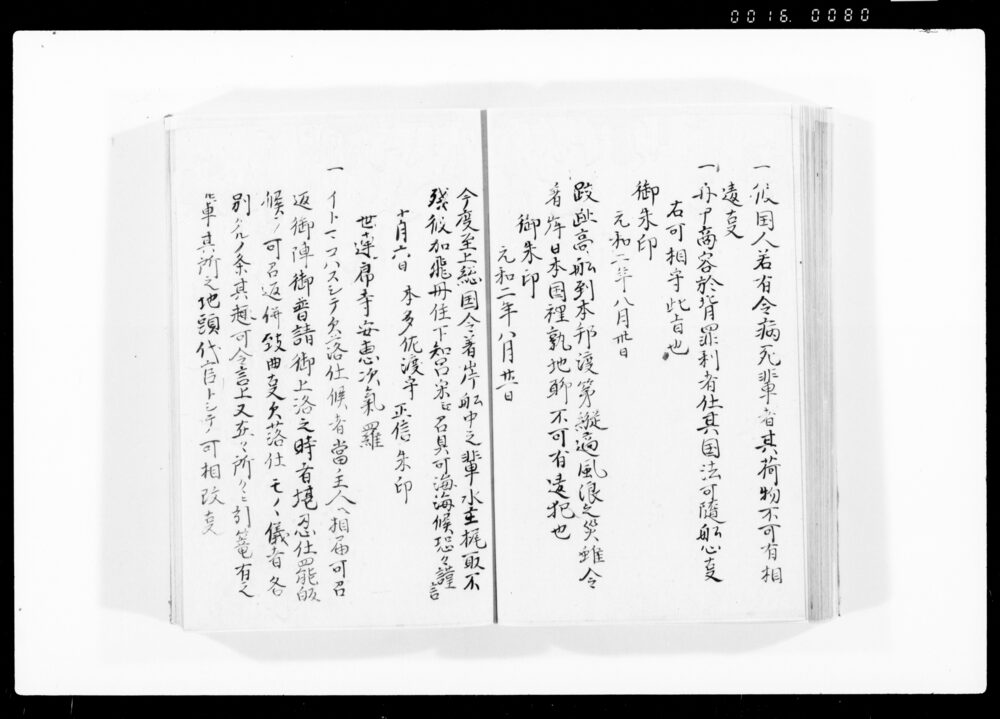 0016. 0080
一 候国人若有令病死輩者其荷物不可有相
違事
一 舟中商客於背罪科者任其国法可随船心事
右可相守此旨也
御朱印
元和二年八月廿日
跤趾商船到本邦渡第縦遍風浪之災雖令
着岸日本国裡孰地聊不可有違犯也
御朱印
元和二年八月廿一日
今度至上総国令着岸船中之輩水主梶取不
残被加飛丹住下知 召具可海海候恐々謹言
十月六日 本多佐渡守 正信朱印
世連扇寺安恵次氣羅
一 イトマコハスシテ欠落仕候者當主人ヘ相届可召
返御陣御普請御上洛之時者堪忍仕罷皈
候ハヽ可召返併錂曲事欠落仕モノヽ儀者各
別タルノ条其趣可令言上又在々所々ニ引篭有之
輩其所之地頭代官トシテ可相改事